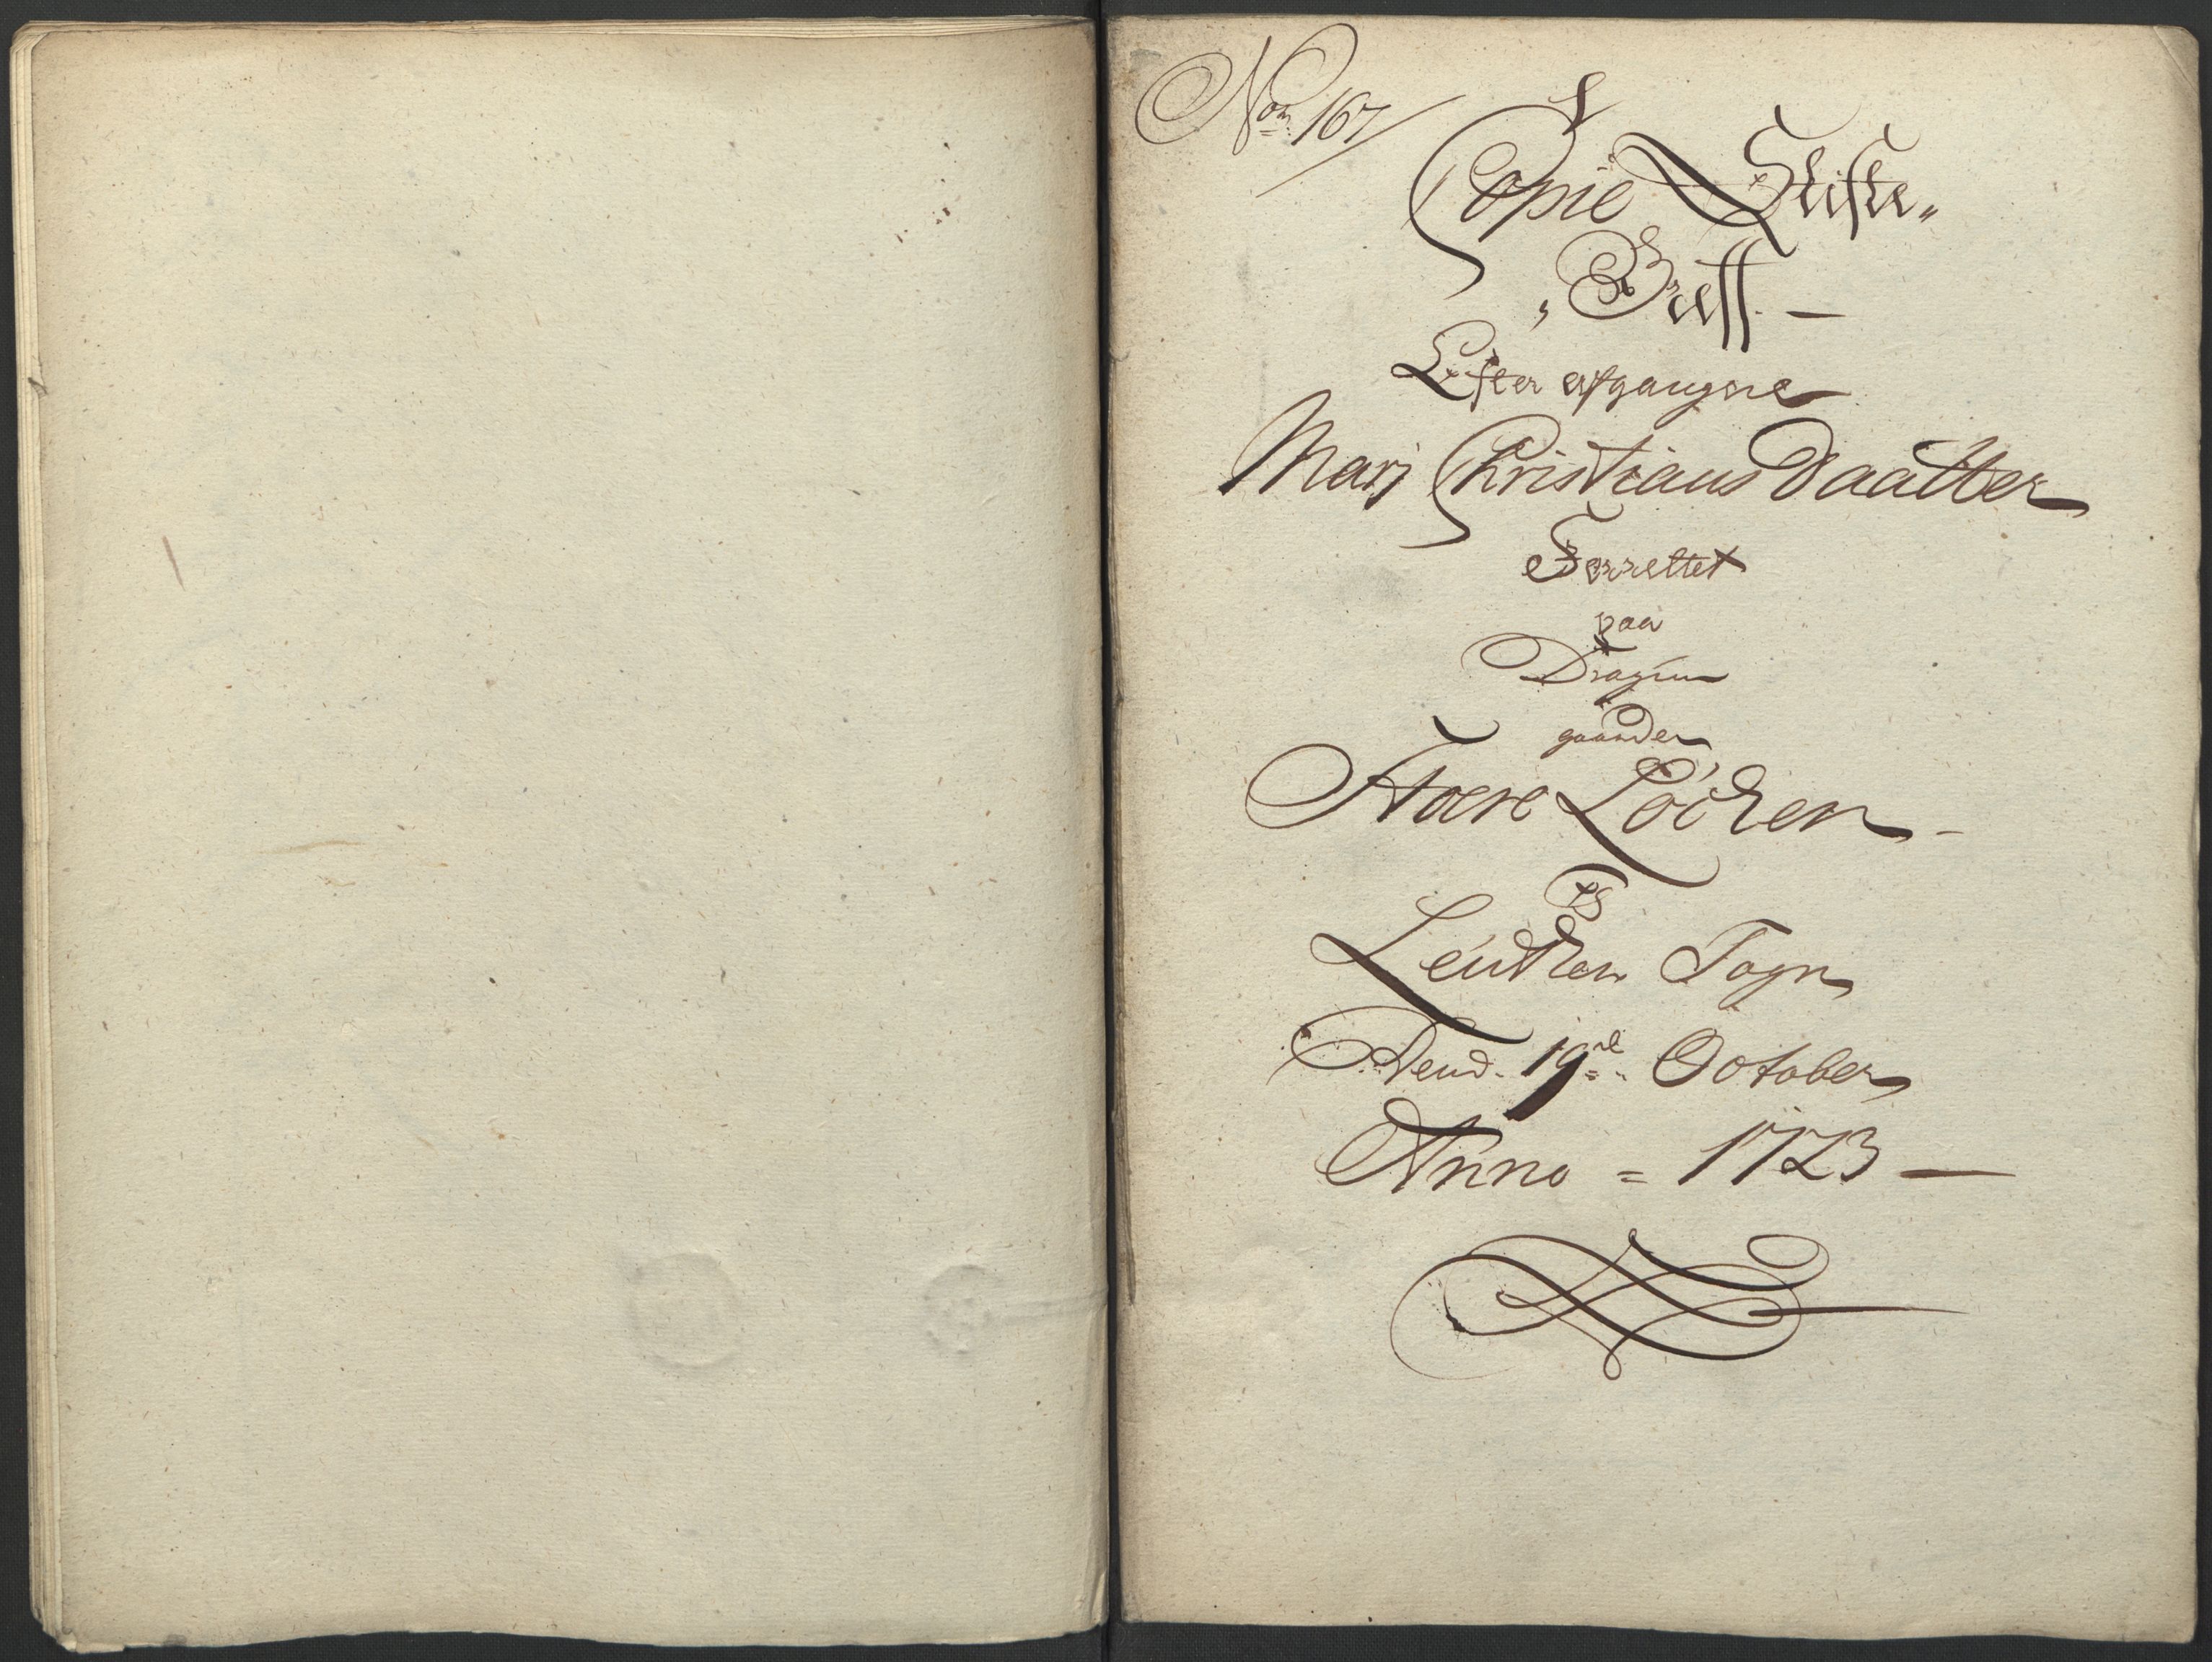 No. 167/
Copie Skifte„
„Breff. —
Efter afgangne
Marj Christians Daatter
Forrettet
paa
Dragun
gaarden
Støere Löchen -
I
Leuthen Sogn
Dend. 19de October
Anno = 1723 —